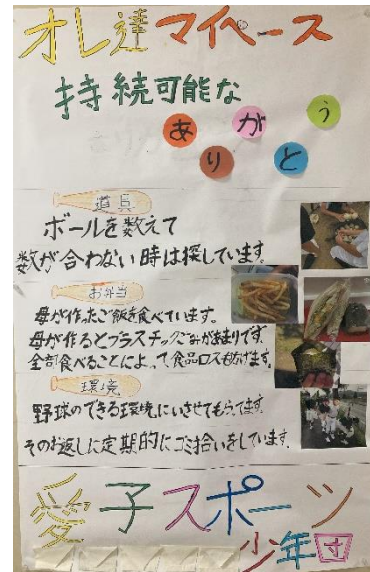 オレ達マイペース
持続可能な
ありがとう
道具
ボールを数えて
数が合わない時は探しています。
お弁当
母が作ったご飯を食べています。
母が作るとプラスチックごみがあまりでず、
全部食べることによって食品ロスも防げます。
環境
野球のできる環境にいさせてもらってます。
そのお返しに定期的にゴミ拾いをしています。
愛子スポーツ
少年団